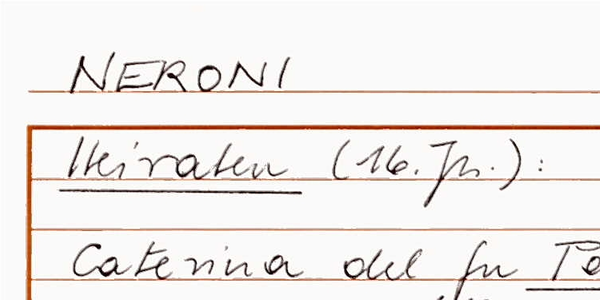 NERONI
Heiraten (16. Jh.):
Caterina del fu